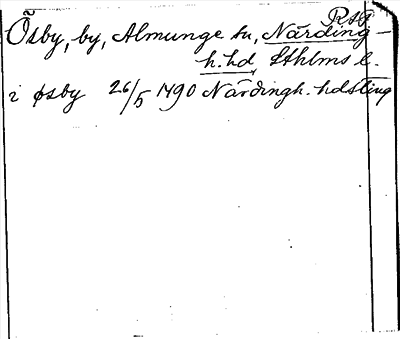 RAP
Õsby, by, Almunge sn, Närding-
h.hd, Sthlms l.
i øsby 26/5 1490 Närdingh. hdsting